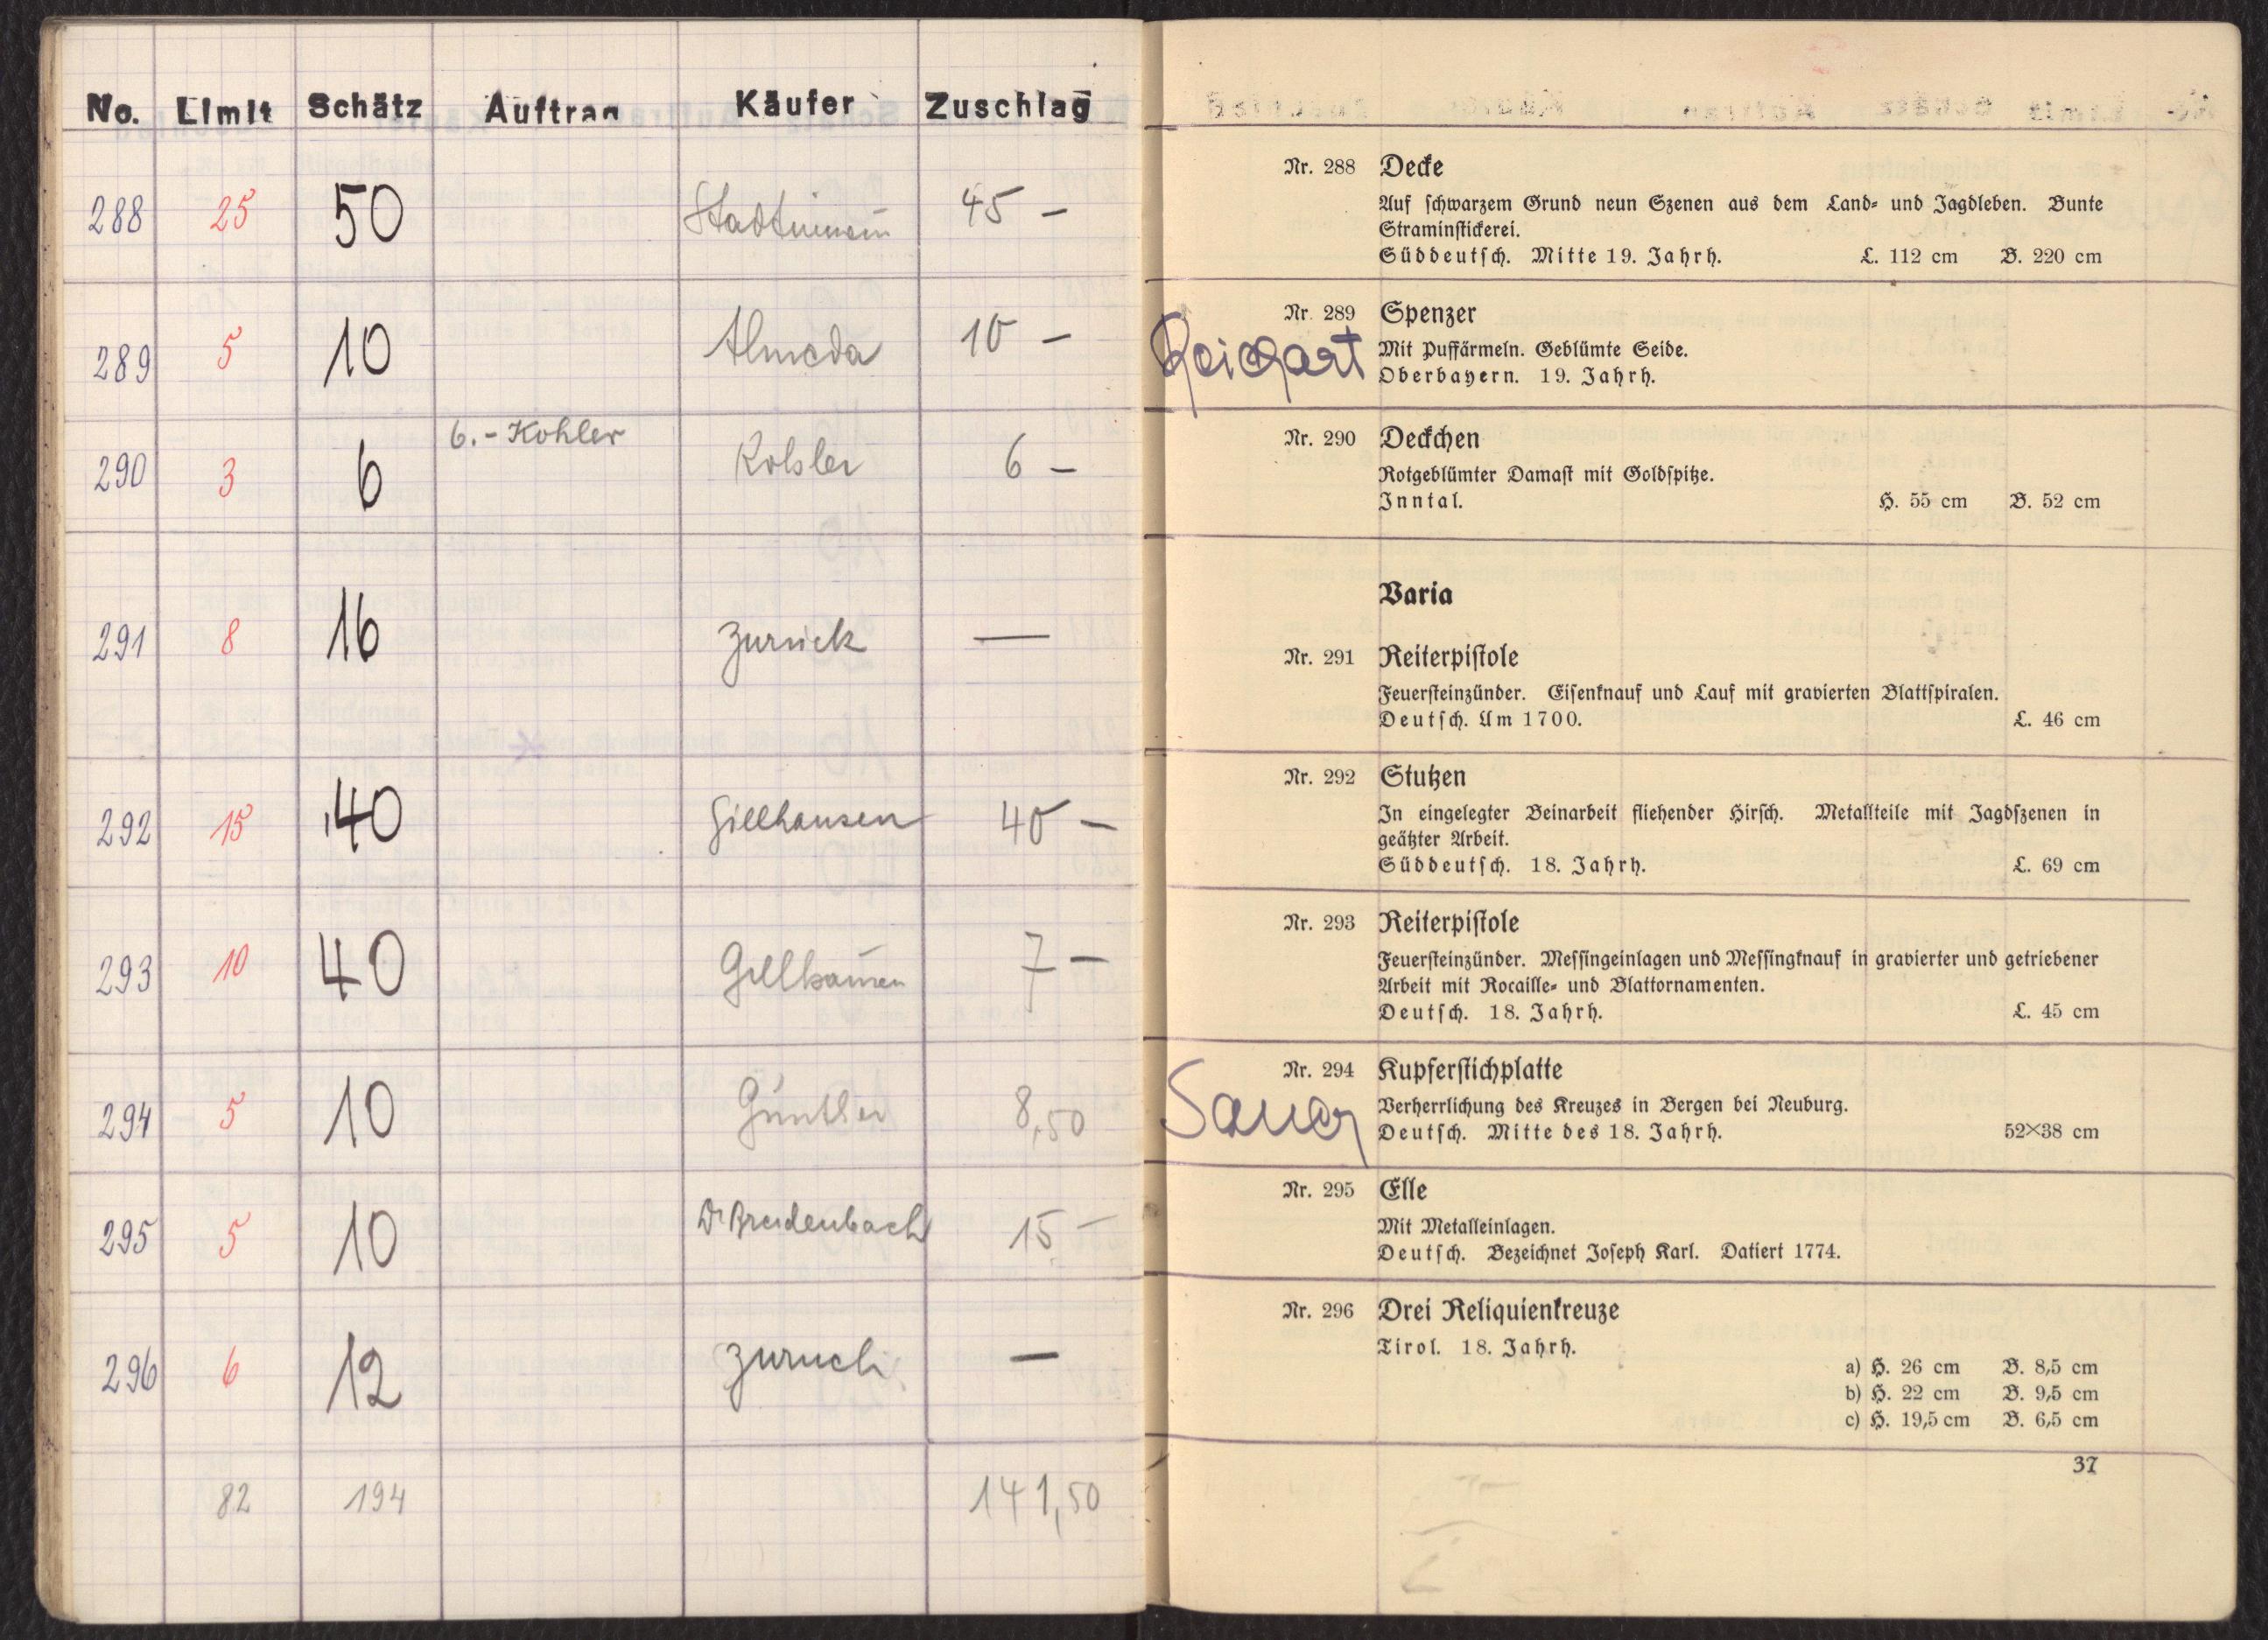 No. Limit Schätz Auftrag Käufer Zuschlag
288 25 50 45 –
289 5 10 Almeda 10 –
290 3 6 6.- Kohler Kohler 6 –
291 8 16 zurück —
292 15 40 Gillhausen 40 –
293 10 40 Gillhausen 7 –
294 5 10 Günther 8,50
295 5 10 Dr Breidenbach 15 –
296 6 12 zurück —
82 194 141,50
Nr. 288 Decke
Auf schwarzem Grund neun Szenen aus dem Land- und Jagdleben. Bunte
Straminstickerei.
Süddeutsch. Mitte 19. Jahrh. L. 112 cm B. 220 cm
Nr. 289 Spenzer
Reichart
Mit Puffärmeln. Geblümte Seide.
Oberbayern. 19. Jahrh.
Nr. 290 Deckchen
Rotgeblümter Damast mit Goldspitze.
Inntal. H. 55 cm B. 52 cm
Varia
Nr. 291 Reiterpistole
Feuersteinzünder. Eisenknauf und Lauf mit gravierten Blattspiralen.
Deutsch. Um 1700. L. 46 cm
Nr. 292 Stutzen
In eingelegter Beinarbeit fliehender Hirsch. Metallteile mit Jagdszenen in
geätzter Arbeit.
Süddeutsch. 18. Jahrh. L. 69 cm
Nr. 293 Reiterpistole
Feuersteinzünder. Messingeinlagen und Messingknauf in gravierter und getriebener
Arbeit mit Rocaille- und Blattornamenten.
Deutsch. 18. Jahrh. L. 45 cm
Nr. 294 Kupferstichplatte
Sauer
Verherrlichung des Kreuzes in Bergen bei Neuburg.
Deutsch. Mitte des 18. Jahrh. 52×38 cm
Nr. 295 Elle
Mit Metalleinlagen.
Deutsch. Bezeichnet Joseph Karl. Datiert 1774.
Nr. 296 Drei Reliquienkreuze
Tirol. 18. Jahrh.
a) H. 26 cm B. 8,5 cm
b) H. 22 cm B. 9,5 cm
c) H. 19,5 cm B. 6,5 cm
37